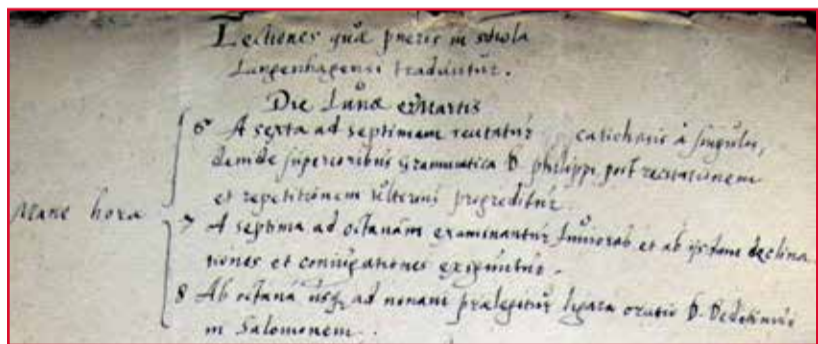 Lectiones quæ pueris in schola
Langenhagensi traduntur.
Die Lunæ et Martis
6 A sexta ad septimam recitatur catechesis à singulis,
deinde superioribus Grammatica D. philippi, post recitationem
et repetitionem ulterius progreditur.
Mane hora
7 A septima ad octavam examinantur et ab declina
tiones et coniugationes exiguntur.
8 Ab octava usq ad nonam prælegitur ligata oratio D.
in Salomonem.